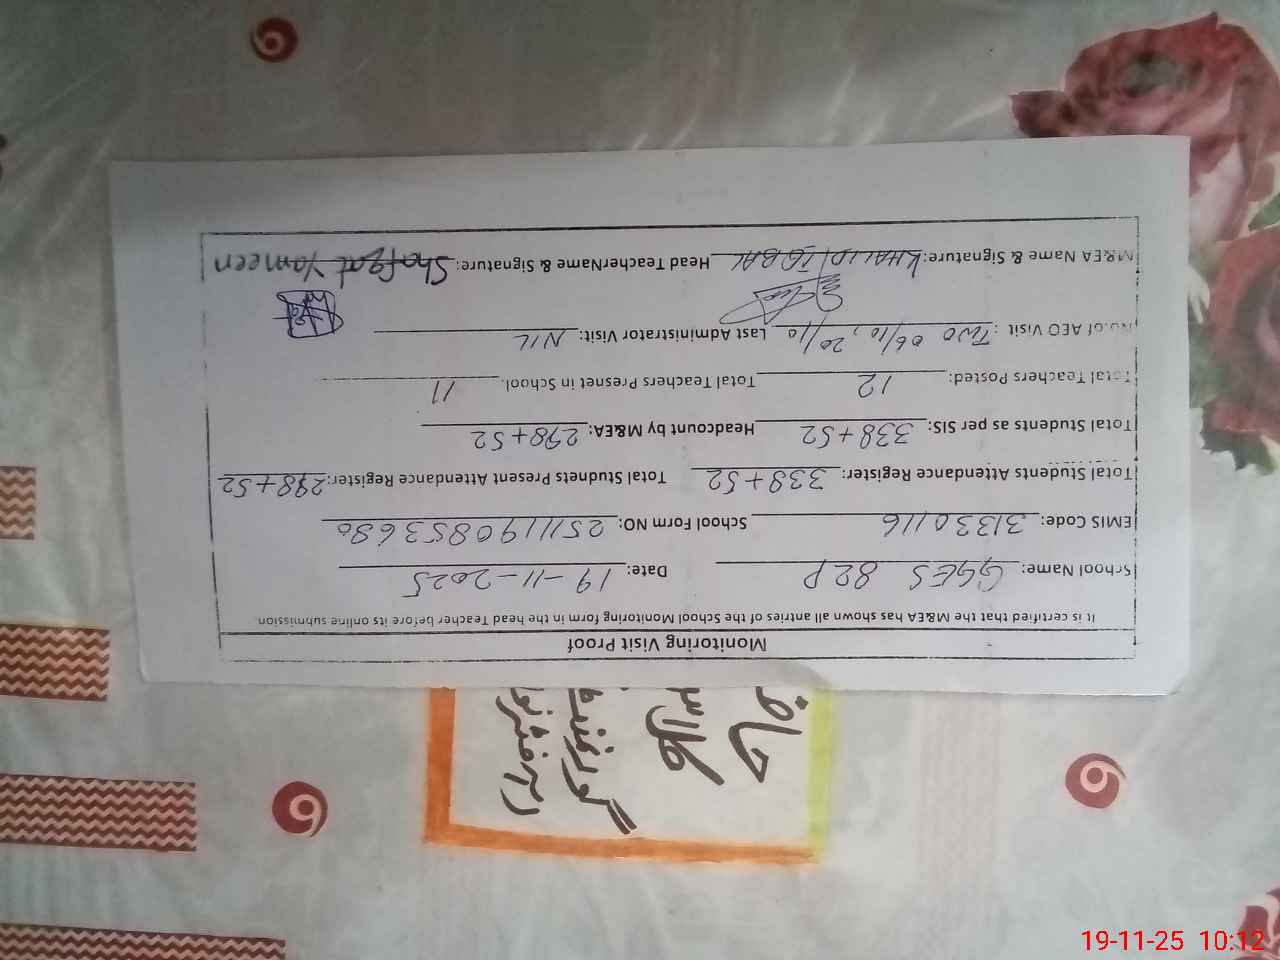 Monitoring Visit Proof
It is certified that the M&EA has shown all antries of the School Monitoring form in the head Teacher before its online submission.
School Name: GGES 82P Date: 19-11-2025
EMIS Code: 31330116 School Form NO: 25111190853680
Total Students Attendance Register: 338+52 Total Studnets Present Attendance Register: 298+52
Total Students as per SIS: 338+52 Headcount by M&EA: 298+52
Total Teachers Posted: 12 Total Teachers Presnet in School. 11
No.of AEO Visit : TWO 06/10, 20/10 Last Administrator Visit: NIL
M&EA Name & Signature: KHALID IQBAL Head TeacherName & Signature: Shafqat Yameen
کلاس
19-11-25 10:12